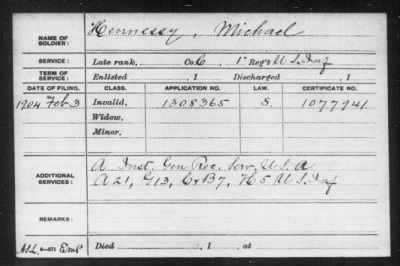 NAME OF SOLDIER: Hennessy, Michael
SERVICE: Late rank, Co. C, 1" Reg't U. S. Inf
TERM OF SERVICE: Enlisted , 1 Discharged , 1
DATE OF FILING. CLASS. APPLICATION NO. LAW. CERTIFICATE NO.
1904 Feb 3 Invalid, 1308365 S. 1077941
Widow,
Minor,
ADDITIONAL SERVICES: A Inst. Gen Rec. Serv. U. S. A
A 21, G 13, C & B 7, H 5 U. S. Inf
REMARKS:
Died , 1 , at